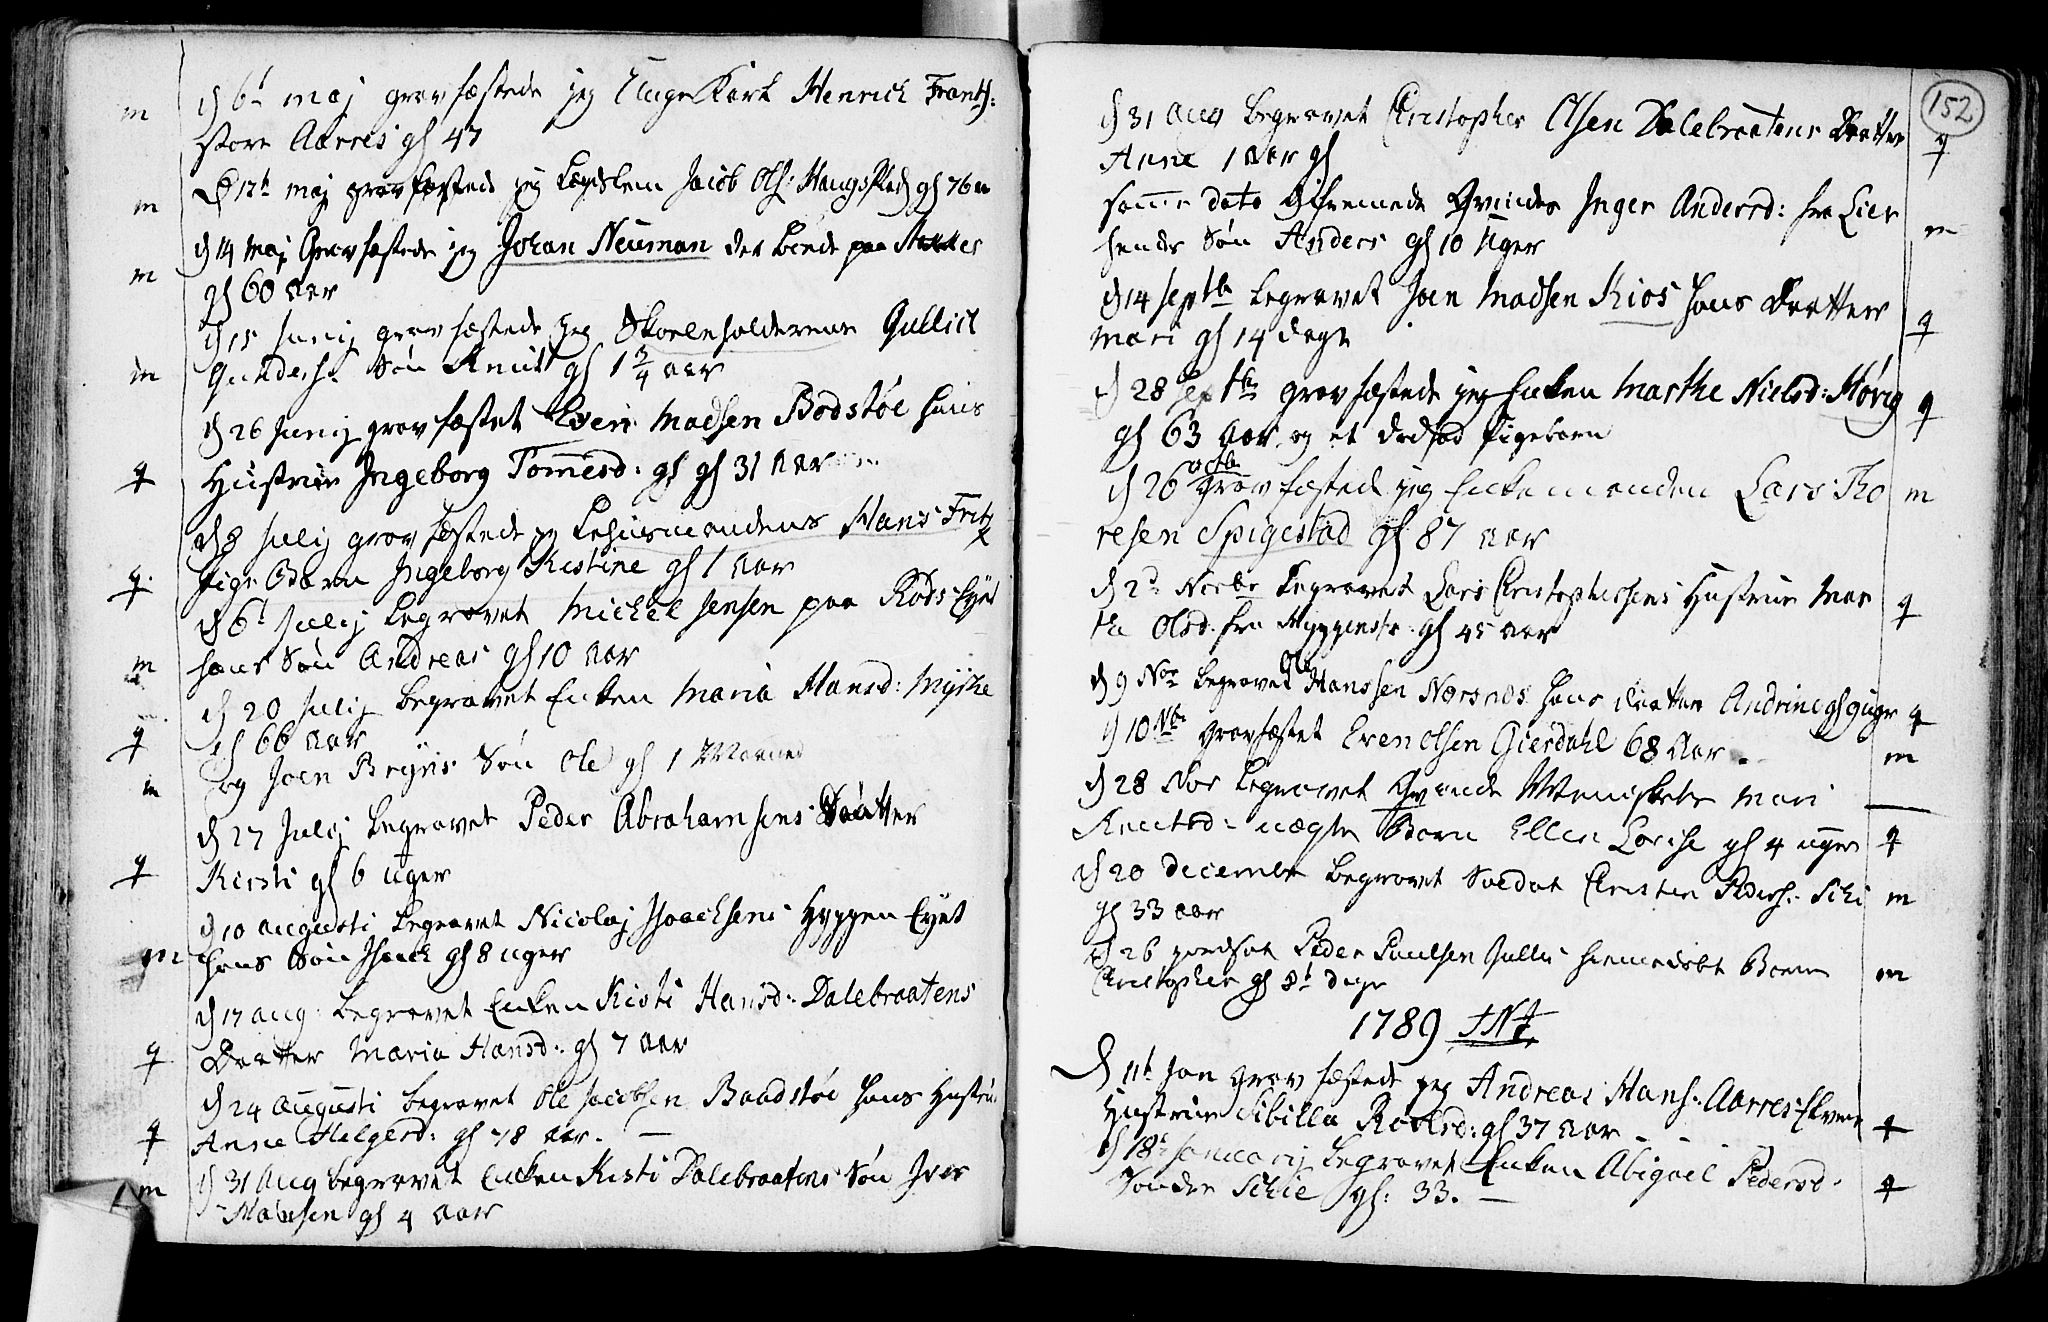 m
d 6t maj gravfæstede jeg Unge Karl Henrich Frants:
store Aarres gl 47
m
D 12t maj gravfæstede jeg Jacob Ols: Haugs gl 76 a
m
d 14 maj Gravfæstede jeg Johan Neuman der boede paa Stokker
gl 60 aar
d 15 Junij gravfæstede jeg Skoeleholderens Gullick
m
Gunders: Søn Knut gl 1 3/4 aar
d 26 Junij gravfæstet Even Madsen Bodstøe hans
q
Hustrue Ingeborg Tommesd: gl gl 31 Aar
d 8 Julij gravfæstede jeg Hans Fritz
q.
Pige Barn Ingeborg Kistine gl 1 aar
d 6t Julij begravet Michel Jensen paa Røds Eyet
m
hans Søn Andreas gl 10 aar
d 20 Julij begravet Enken Maria Hansd: Myhre
q
gl 66 aar
m
og Joen Bryns Søn Ole gl 1 Maaned
d 27 Julij begravet Peder Abrahamsens Daatter
q
Kirsti gl 6 uger
d 10 augusti begravet Nicolaj Isaachsens Hyggen Eyet
m
hans Søn Isaach gl 8 uger
d 17 aug: begravet Enken Kisti Hansd: Dalebraatens
q
Daatter Maria Hansd: gl 7 aar
d 24 Augusti begravet Ole Jacobsen Baadstøe hans Hustrue
q
Anne Helgerd: gl 78 aar. —
m
d 31 Aug begravet Enken Kisti Dalebraatens Søn Iver
Hansen gl 4 aar
152
d 31 aug begravet Christopher Olsen Dalebraatens Daatter
q
Anne 1 aar gl
samme dato d fremmede Qvindes Inger Andersd: fra Lier
m
hendes Søn Anders gl 10 uger
d 14 septbr begravet Joen Madsen Kios hans Daatter
q
Mari gl 14 dage
d 28 septbr gravfæstede jeg Enken Marthe Nielsd: Høvig
q
gl 63 aar og et dødfød Pigebarn
d 26 octbr gravfæstede jeg Enkemanden Lars Tho
m
resen Spigestad gl 87 aar
d 2d Novbr begravet Lars Christophersens Hustrue Mar
q
the Olsd. fra gl 45 aar
d 9 Nov begravet Ole Hanssen Nærsnes hans daatter Andrine gl 9 uger
q
d 10 Nbr gravfæstet Even Olsen Gierdahl 68 Aar.
m
d 28 Nov begravet Qvinde Menisket Mari
Knutsd: uægte Barn Ellen Lovise gl 4 uger
q
d 20 december begravet Soldat Christen Peders: Schi
m
gl 33 aar
d 26 jordsat Peder Paulsen Gullis hiemedøbt Barn
m
Christopher gl 8t dage
1789
d 11t Jan gravfæstede jeg Andreas Hans: Aarres
Hustrue Sibilla Roelsd: gl 37 aar
q
d 18t Januarij begravet Enken Abigael Pedersd.
Søndre Schie gl: 33. —
q